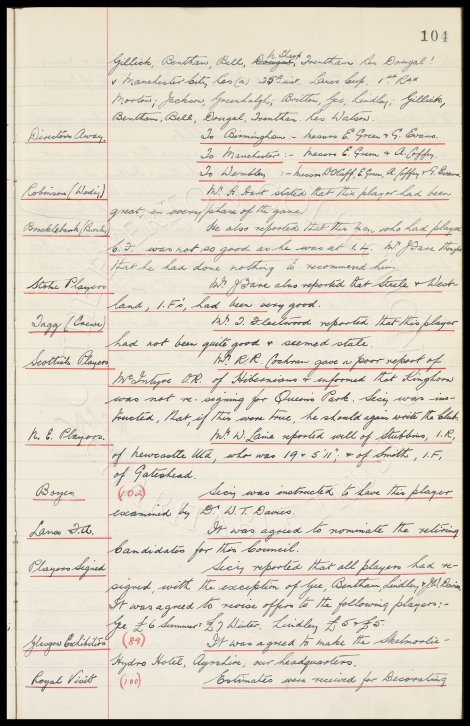 104
Gillick, Bentham, Bell, Dougal, N. Sharp, Trentham Res Dougal!
v Manchester City Res (a) 25th inst. Lancs Cup. 1st Rnd
Morton, Jackson, Greenhalgh, Britton, Gee, Lindley, Gillick,
Bentham, Bell, Dougal, Trentham Res Watson.
Directors Away. To Birmingham :- Messrs E. Green & G. Evans.
To Manchester :- Messrs E. Green & A. Coffey.
To Wembley :- Messrs W. Cuff, E. Green, A. Coffey & G. Evans.
Robinson (Wed'y) Mr. H. Hart stated that this player had been
great, in every phase of the game.
Brocklebank (Burnley) He also reported that this man who had played
C.F. was not so good as he was at I.L. Mr J Fane
that he had done nothing to recommend him.
Stoke Players Mr. J Fane also reported that Steele & West-
land, I.F's, had been very good.
Jaggy (Crewe) Mr. T. Fleetwood reported that this player
had not been quite good & seemed stale.
Scottish Players Mr. R.R. Cochran gave a poor report of
McIntyre O.R. of Hibernians & informed that Kinghorn
was not re-signing for Queens Park. Secy was ins-
tructed, that, if this were true, he should again write the Club.
N. E. Players. Mr. W Laine reported well of Stubbins, I.R,
of Newcastle Utd, who was 19 & 5'11", & of Smith, I.F,
of Gateshead.
Boyes (102) Secy was instructed to have this player
examined by Dr W.T. Davies.
Lancs F.A. It was agreed to nominate the retiring
Candidates for this Council.
Players Signed Secy reported that all players had re-
signed, with the exception of Gee, Bentham, Lindley, & J.W. Davies
It was agreed to revise offers to the following players:-
Gee £6 Summer £7 Winter, Lindley £5 & £5.
Glasgow Exhibition (89) It was agreed to make the Skelmorlie
Hydro Hotel, Ayrshire, our headquarters.
Royal Visit (100) Estimates were received for Decorating